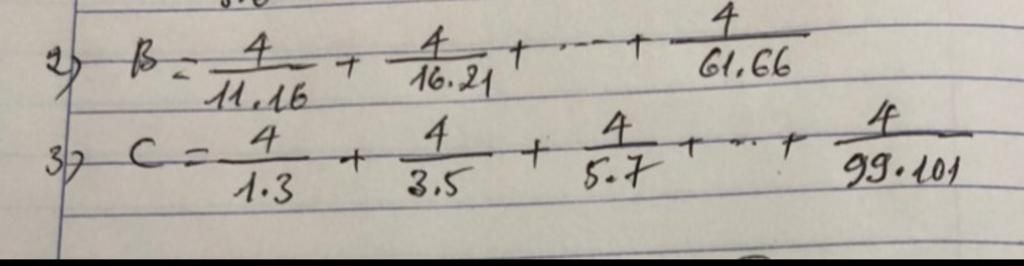 2) B = 4/11.16 + 4/16.21 + ... + 4/61.66
3) C = 4/1.3 + 4/3.5 + 4/5.7 + ... + 4/99.101